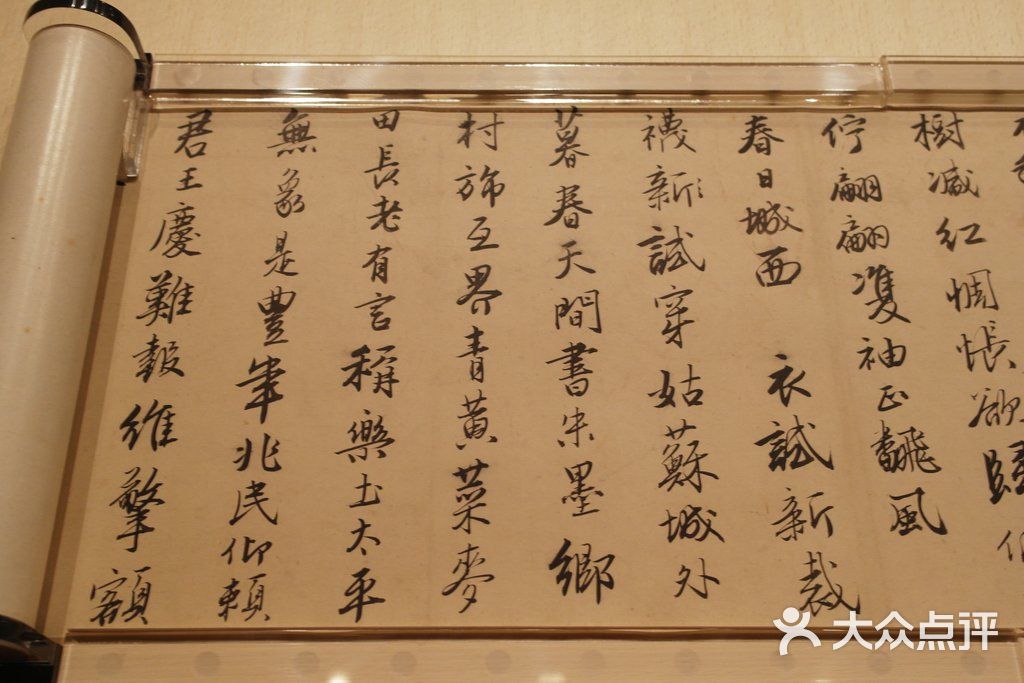 樹减紅惆悵欲歸
佇翩翩雙袖正翻風
春日城西 衣試新裁
襪新試穿姑蘇城外
暮春天間書朱墨鄉
村旆互界青黄菜麥
田長老有言稱樂土太平
無象是豊年兆民仰賴
君王慶難報維擎額
大众点评